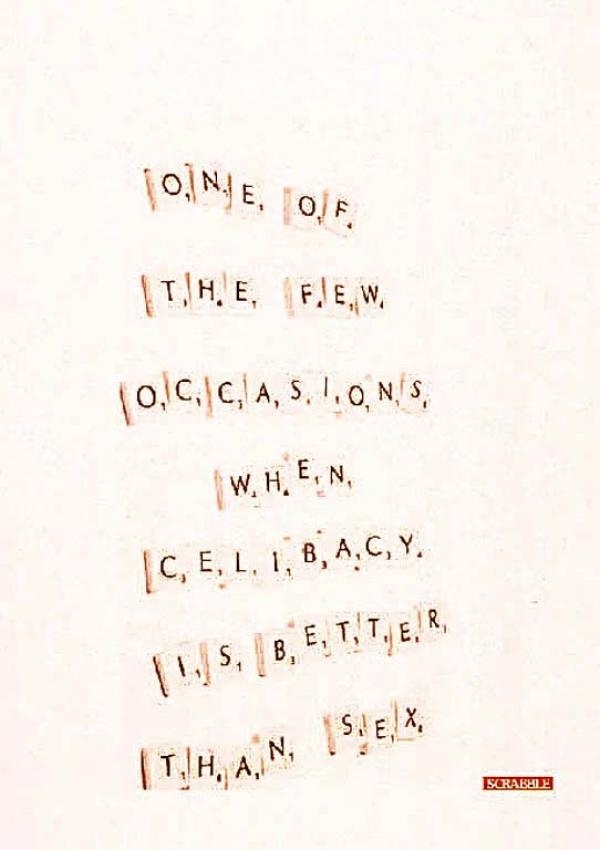 ONE OF
THE FEW
OCCASIONS
WHEN
CELIBACY
IS BETTER
THAN SEX
SCRABBLE